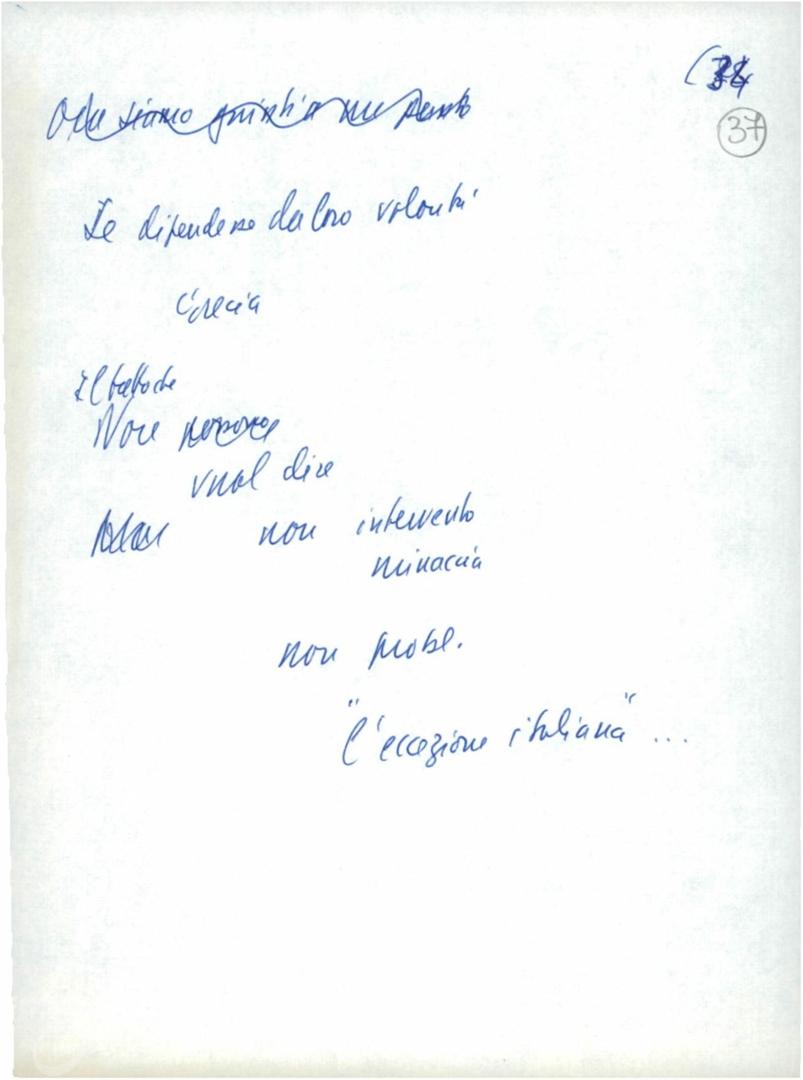 37
Ora siamo giunti a un punto
Se dipendesse da loro volontà
Grecia
Il fatto che
Non
vuol dire
non intervento
minaccia
non probl.
"l'eccezione italiana" ...